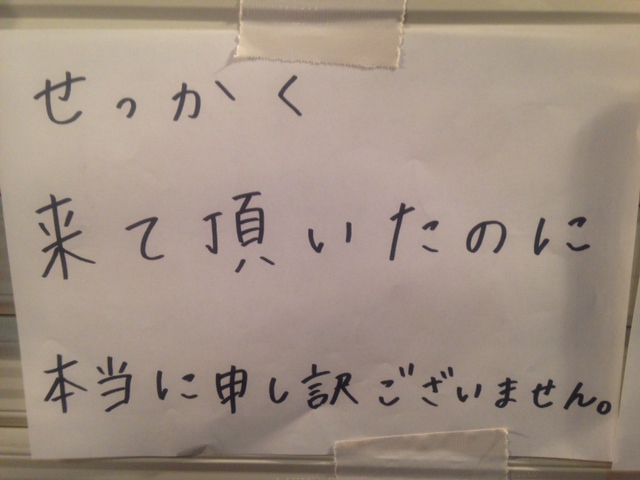 せっかく
来て頂いたのに
本当に申し訳ございません。